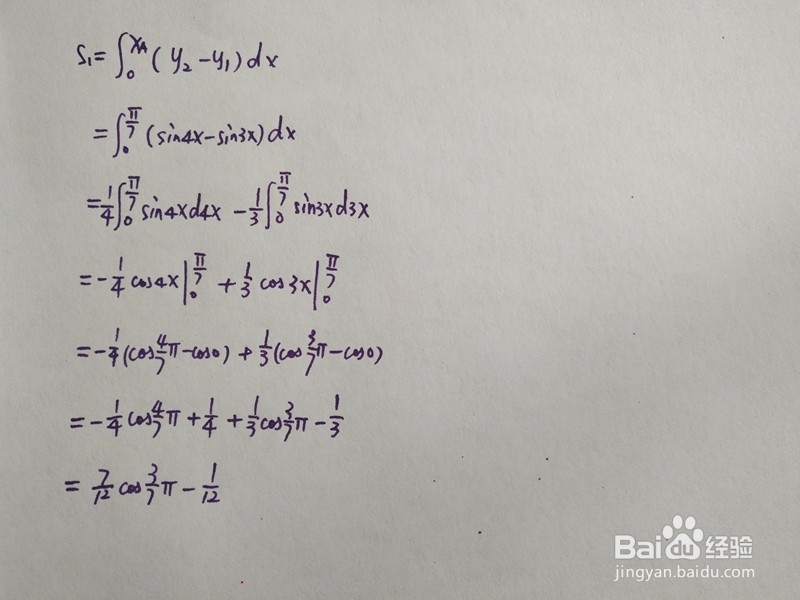 S₁=∫₀^{x_A}(y₂-y₁)dx
=∫₀^{π/7}(sin4x-sin3x)dx
=1/4∫₀^{π/7}sin4xd4x-1/3∫₀^{π/7}sin3xd3x
=-1/4cos4x|₀^{π/7}+1/3cos3x|₀^{π/7}
=-1/4(cos4/7π-cos0)+1/3(cos3/7π-cos0)
=-1/4cos4/7π+1/4+1/3cos3/7π-1/3
=7/12cos3/7π-1/12
Bai du 经验
jingyan.baidu.com